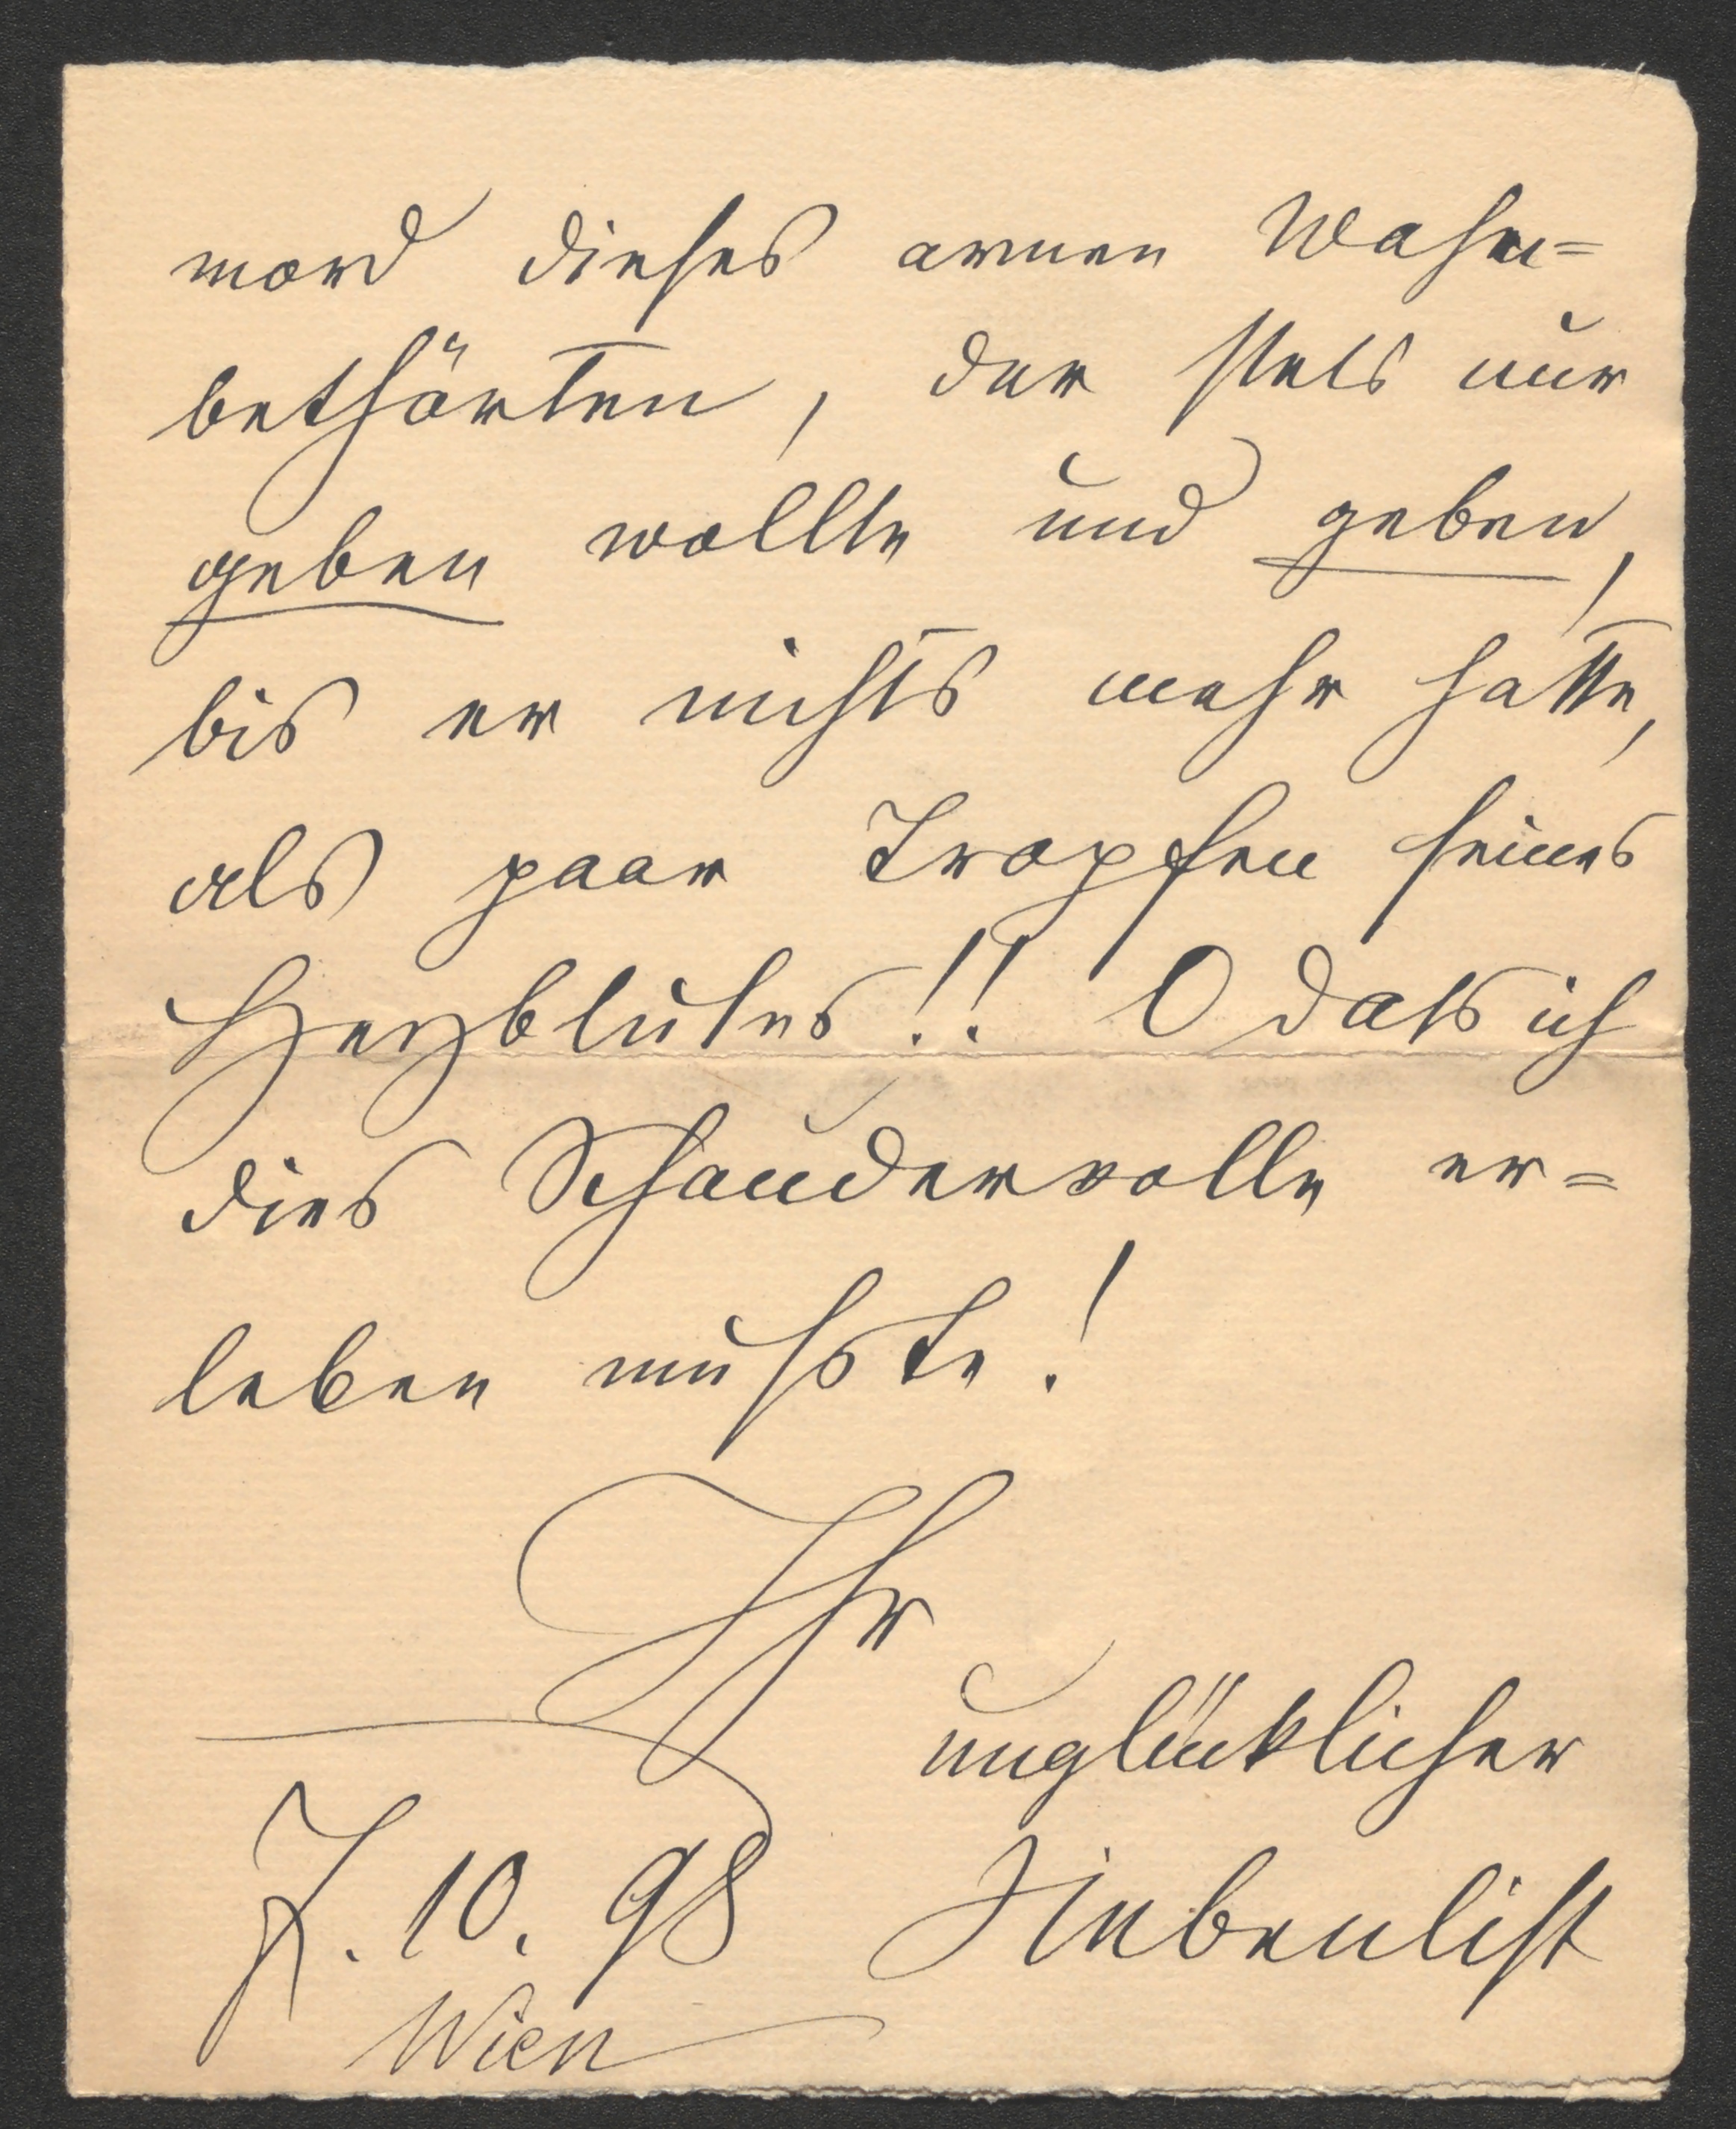 mord dieses armen Wahn=
bethörten, der stets nur
geben wollte und geben,
bis er nichts mehr hatte,
als paar Tropfen seines
Herzblutes!! O dass ich
dies Schaudervolle er=
leben musste!
Ihr
unglücklicher
7. 10. 98 Siebenlist
Wien